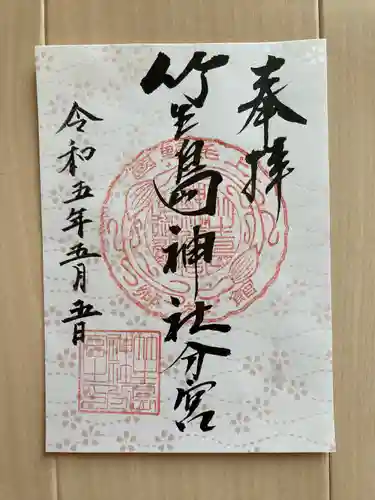 奉拝
竹生島神社分宮
令和五年五月五日